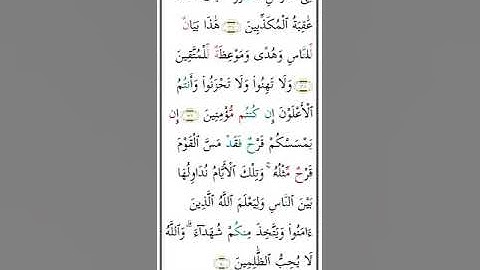 عَٰقِبَةُ ٱلْمُكَذِّبِينَ هَٰذَا بَيَانٌ
لِّلنَّاسِ وَهُدًى وَمَوْعِظَةٌ لِّلْمُتَّقِينَ
وَلَا تَهِنُوا۟ وَلَا تَحْزَنُوا۟ وَأَنتُمُ
ٱلْأَعْلَوْنَ إِن كُنتُم مُّؤْمِنِينَ إِن
يَمْسَسْكُمْ قَرْحٌ فَقَدْ مَسَّ ٱلْقَوْمَ
قَرْحٌ مِّثْلُهُۥ ۚ وَتِلْكَ ٱلْأَيَّامُ نُدَاوِلُهَا
بَيْنَ ٱلنَّاسِ وَلِيَعْلَمَ ٱللَّهُ ٱلَّذِينَ
ءَامَنُوا۟ وَيَتَّخِذَ مِنكُمْ شُهَدَآءَ ۗ وَٱللَّهُ
لَا يُحِبُّ ٱلظَّٰلِمِينَ